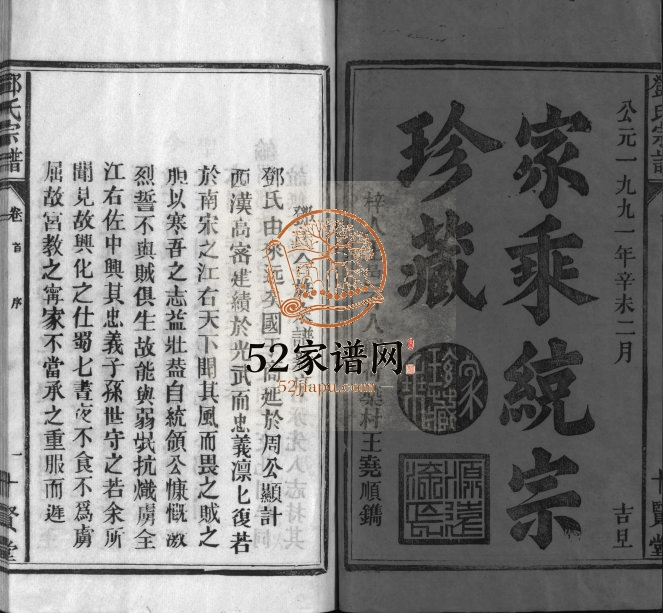 鄧氏宗譜
公元一九九一年辛未二月
吉旦
家乘統宗
珍藏
十賢堂
村王堯順鐫
52家谱网
52jiapu.com
鄧氏宗譜
卷首 序
一
十賢堂
鄧氏由
國
延於周公顯計
西漢高密建績於光武而忠義凛七復若
於南宋之江右天下聞其風而畏之賊之
胆以寒吾之志益壯葢自統領公慷慨激
烈誓不與賊俱生故能與弱㷼抗熾虜全
江右佐中興其忠義子孫世守之若余所
聞見故興化之仕蜀七晝夜不食不爲虜
屈故宮教之寗家不當承之重服而遜